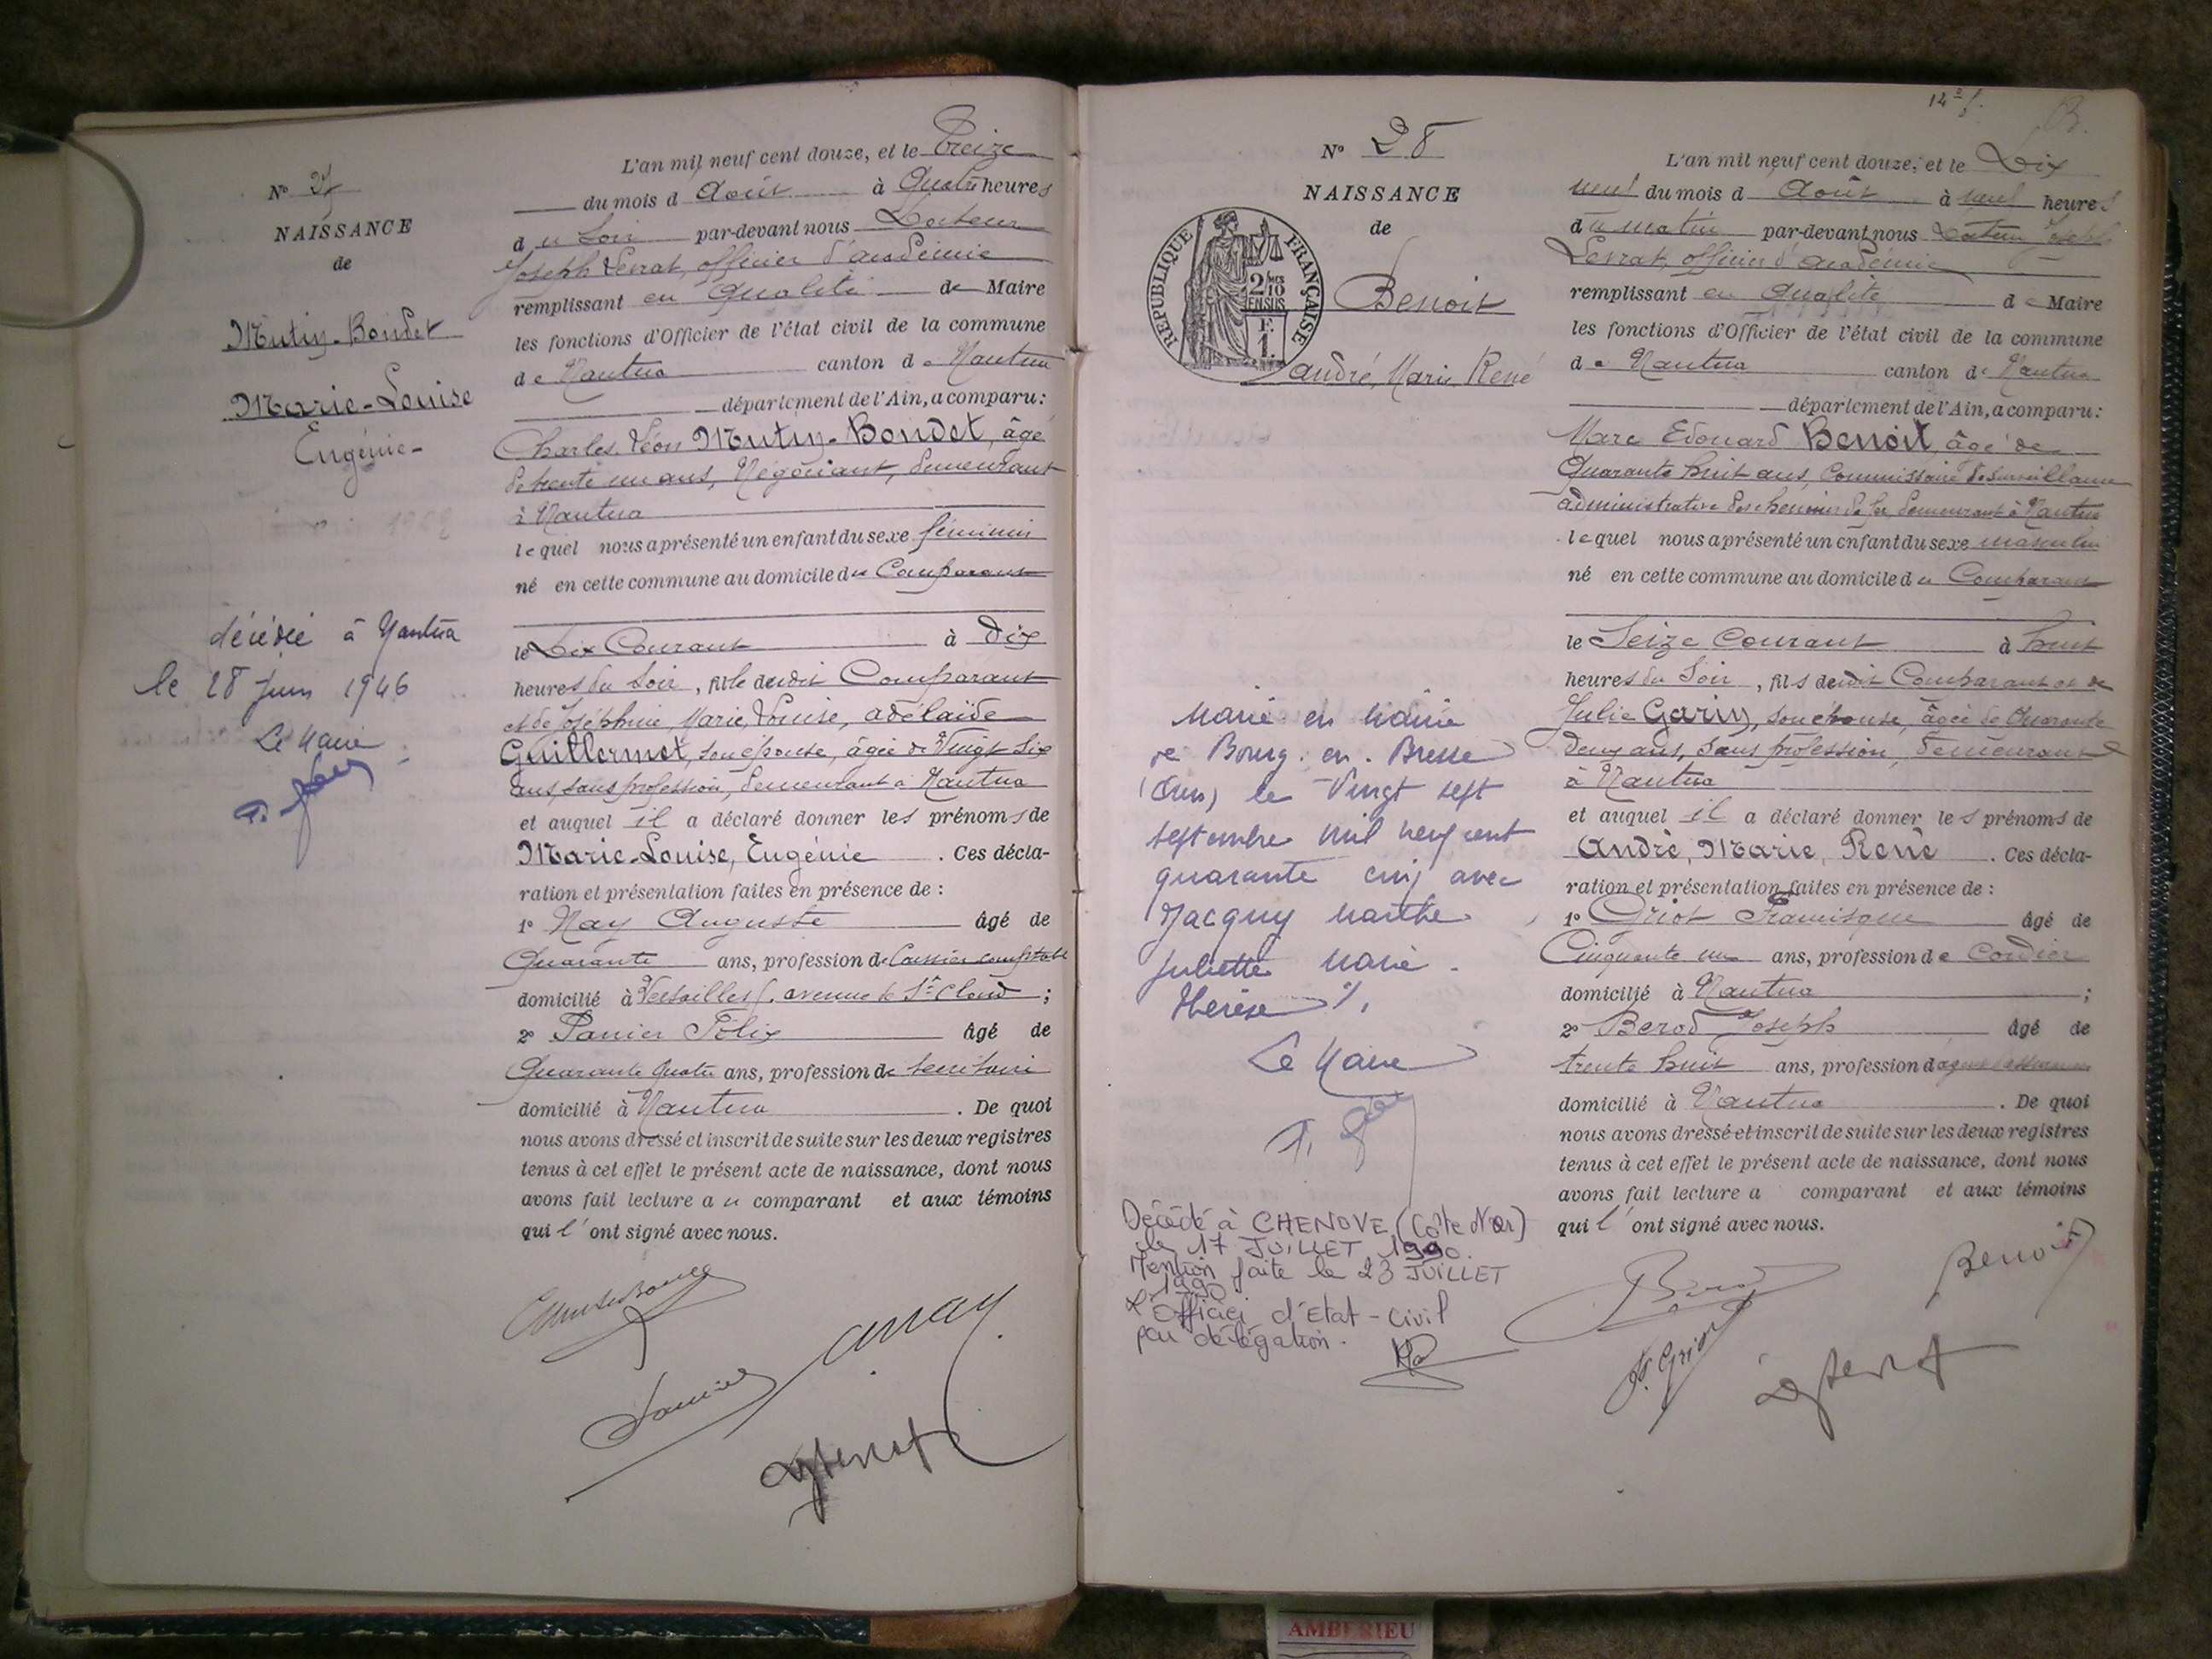 N° 27
NAISSANCE
de
Mutin-Boudet
Marie-Louise
Eugénie-
décédée à Nantua
le 28 Juin 1946
Le Maire
L'an mil neuf cent douze, et le Treize
du mois d Août à Quatre heures
du Soir par-devant nous Docteur
Joseph Levrat, officier d'académie
remplissant en Qualité de Maire
les fonctions d'Officier de l'état civil de la commune
de Nantua canton de Nantua
département de l'Ain, a comparu:
Charles, Léon Mutin-Boudet, âgé
de trente un ans, Négociant, demeurant
à Nantua
lequel nous a présenté un enfant du sexe féminin
né en cette commune au domicile du Comparant
le Dix Courant à Dix
heures du Soir, fille dudit Comparant
et de Joséphine, Marie, Louise, adélaïde
Guillermet, son épouse, âgée de Vingt Six
ans, sans profession, demeurant à Nantua
et auquel il a déclaré donner les prénoms de
Marie-Louise, Eugénie. Ces décla-
ration et présentation faites en présence de :
1° Nay Auguste âgé de
Quarante ans, profession de Caissier comptable
domicilié à Versailles, avenue de St Cloud ;
2° Panier Félix âgé de
Quarante quatre ans, profession de
domicilié à Nantua. De quoi
nous avons dressé et inscrit de suite sur les deux registres
tenus à cet effet le présent acte de naissance, dont nous
avons fait lecture au comparant et aux témoins
qui l'ont signé avec nous.
14e f.
N° 28
NAISSANCE
de
RÉPUBLIQUE FRANÇAISE
2/10
EN SUS
F.
1.
Benoit
André, Marie René
Marié en Mairie
de Bourg-en-Bresse
(Ain) le Vingt sept
septembre mil neuf cent
quarante cinq avec
Jacquy Marthe
Juliette Marie
Thérèse
Le Maire
Décédé à CHENOVE (Côte d'Or)
le 17 JUILLET 1990.
Mention faite le 23 JUILLET
1990
L'Officier d'Etat-Civil
par délégation.
L'an mil neuf cent douze, et le Dix
neuf du mois d Août à neuf heures
du matin par-devant nous Docteur Joseph
Levrat, officier d'académie
remplissant en Qualité de Maire
les fonctions d'Officier de l'état civil de la commune
de Nantua canton de Nantua
département de l'Ain, a comparu:
Marc Edouard Benoit, âgé de
Quarante huit ans, Commissaire de Surveillance
administrative des chemins de fer, demeurant à Nantua
lequel nous a présenté un enfant du sexe masculin
né en cette commune au domicile du Comparant
le Seize Courant à huit
heures du Soir, fils dudit Comparant et de
Julie Garin, son épouse, âgée de Quarante
deux ans, Sans profession, demeurant
à Nantua
et auquel il a déclaré donner les prénoms de
André, Marie, René. Ces décla-
ration et présentation faites en présence de :
1° Griot Francisque âgé de
Cinquante un ans, profession de Cordier
domicilié à Nantua ;
2° Berod Joseph âgé de
trente huit ans, profession d'agent
domicilié à Nantua. De quoi
nous avons dressé et inscrit de suite sur les deux registres
tenus à cet effet le présent acte de naissance, dont nous
avons fait lecture a comparant et aux témoins
qui l'ont signé avec nous.
Benoit
Berod
Fs Griot
AMBERIEU